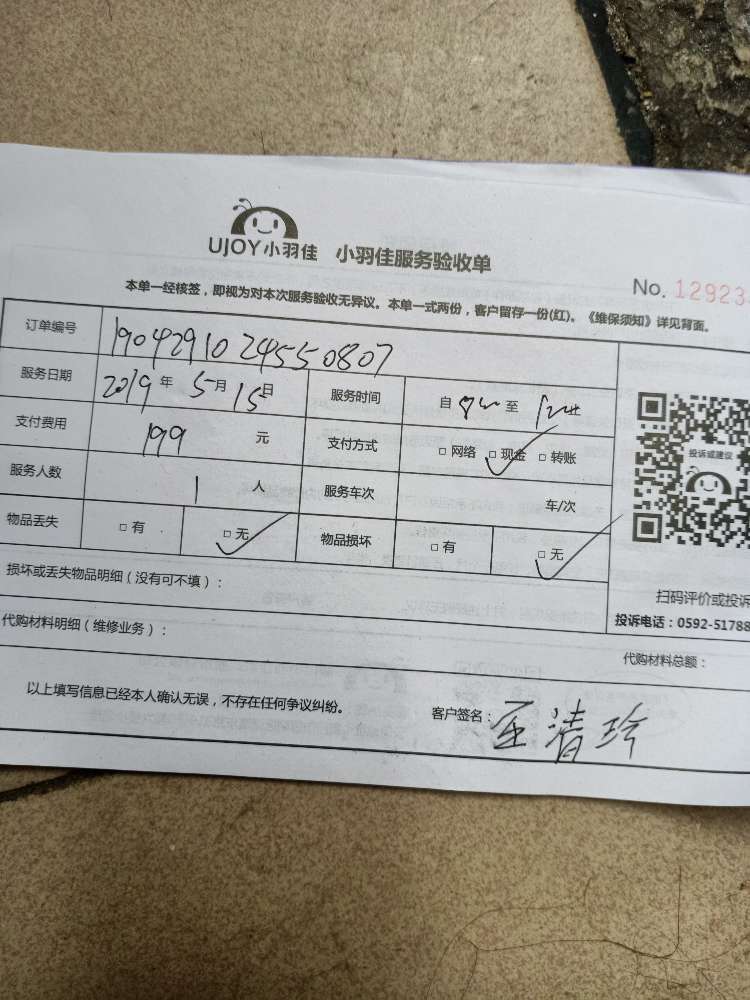 UJOY小羽佳 小羽佳服务验收单
No. 12923
本单一经核签，即视为对本次服务验收无异议。本单一式两份，客户留存一份(红)。《维保须知》详见背面。
订单编号 19042910245550807
服务日期 2019年 5月 15日 服务时间 自 至
支付费用 199 元 支付方式 □网络 □现金 □转账
服务人数 1 人 服务车次 车/次
物品丢失 □有 □无 物品损坏 □有 □无
投诉或建议
扫码评价或投诉
投诉电话：0592-51788
损坏或丢失物品明细（没有可不填）：
代购材料明细（维修业务）：
代购材料总额：
以上填写信息已经本人确认无误，不存在任何争议纠纷。 客户签名： 清珍